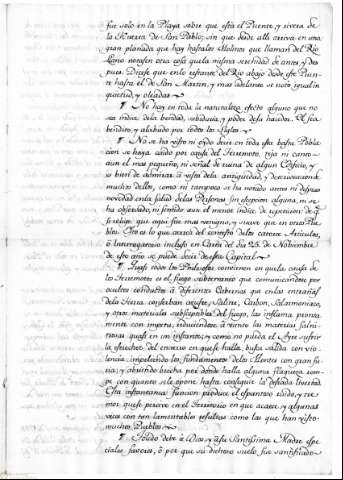 fue solo en la Playa sobre que està el Puente, y rivera de
la Huerta de San Pablo; sin que desde alli arriva en una
gran planada que hay hasta los Molinos que llaman del Rio
llano notasen otra cosa que la misma serenidad de antes, y des
pues. Dizese que en lo restante del Rio abajo desde este Puen
te hasta el de San Martin, y mas adelante se notò igual in
quietud, y oleadas.
¶ No hay en toda la naturaleza efecto alguno que no
nos indice dela bondad, sabiduria, y poder desu hacedor. El sea
bendito, y alabado por todos los siglos.
¶ No se ha visto ni oydo decir en toda esta basta Pobla
cion se haya caido por causa del Terremoto, teja ni canto
aun el mas pequeño, ni señal de ruina de algun Edificio, y
es bien de admirar à vista dela antiguedad, y
muchos dellos, como ni tampoco se ha notado
novedad enla salud delas Personas sin excepcion alguna, ni se
ha observado, ni sentido aun el menor indice de repeticion de
que aqui fue mas benigno, y suave que en otros Pue
blos. Esto es lo que acerca del contexto delos catorce Articulos,
ò Interrogatorio incluso en Carta del dia 25. de Noviembre
de este año se puede decir de esta Capital.
¶ Pues todos los Philosofos convienen en que la causa de
los Terremotos es el fuego subterraneo que comunicandose por
ocultos conductos à diferentes Cabernas que enlas entrañas
dela tierra conserban azufre, Salitre, Carbon, Salarmoniaco,
y otras materias subsceptibles del fuego, las inflama pronta
mente con impetu, reduciendose à viento las materias salni
trosas quasi en un instante; y como no pueda el Ayre sufrir
la estrechez del encierro en que se halla, busca salida con vio
lencia impeliendo los fundamentos delos Montes con gran fu
ria; y abriendo brecha por donde halla alguna flaqueza rom
pe con quanto se le opone hasta conseguir la deseada livertad.
Esta instantanea funcion produce el espantoso ruido, y tre
mor que se percive en el Territorio en que acaece, y algunas
veces con tan lamentables resultas como las que han visto
muchos Pueblos.
¶ Toledo debe à Dios, y à su Santissima Madre espe
ciales favores, ò por que su dichoso suelo fue santificado